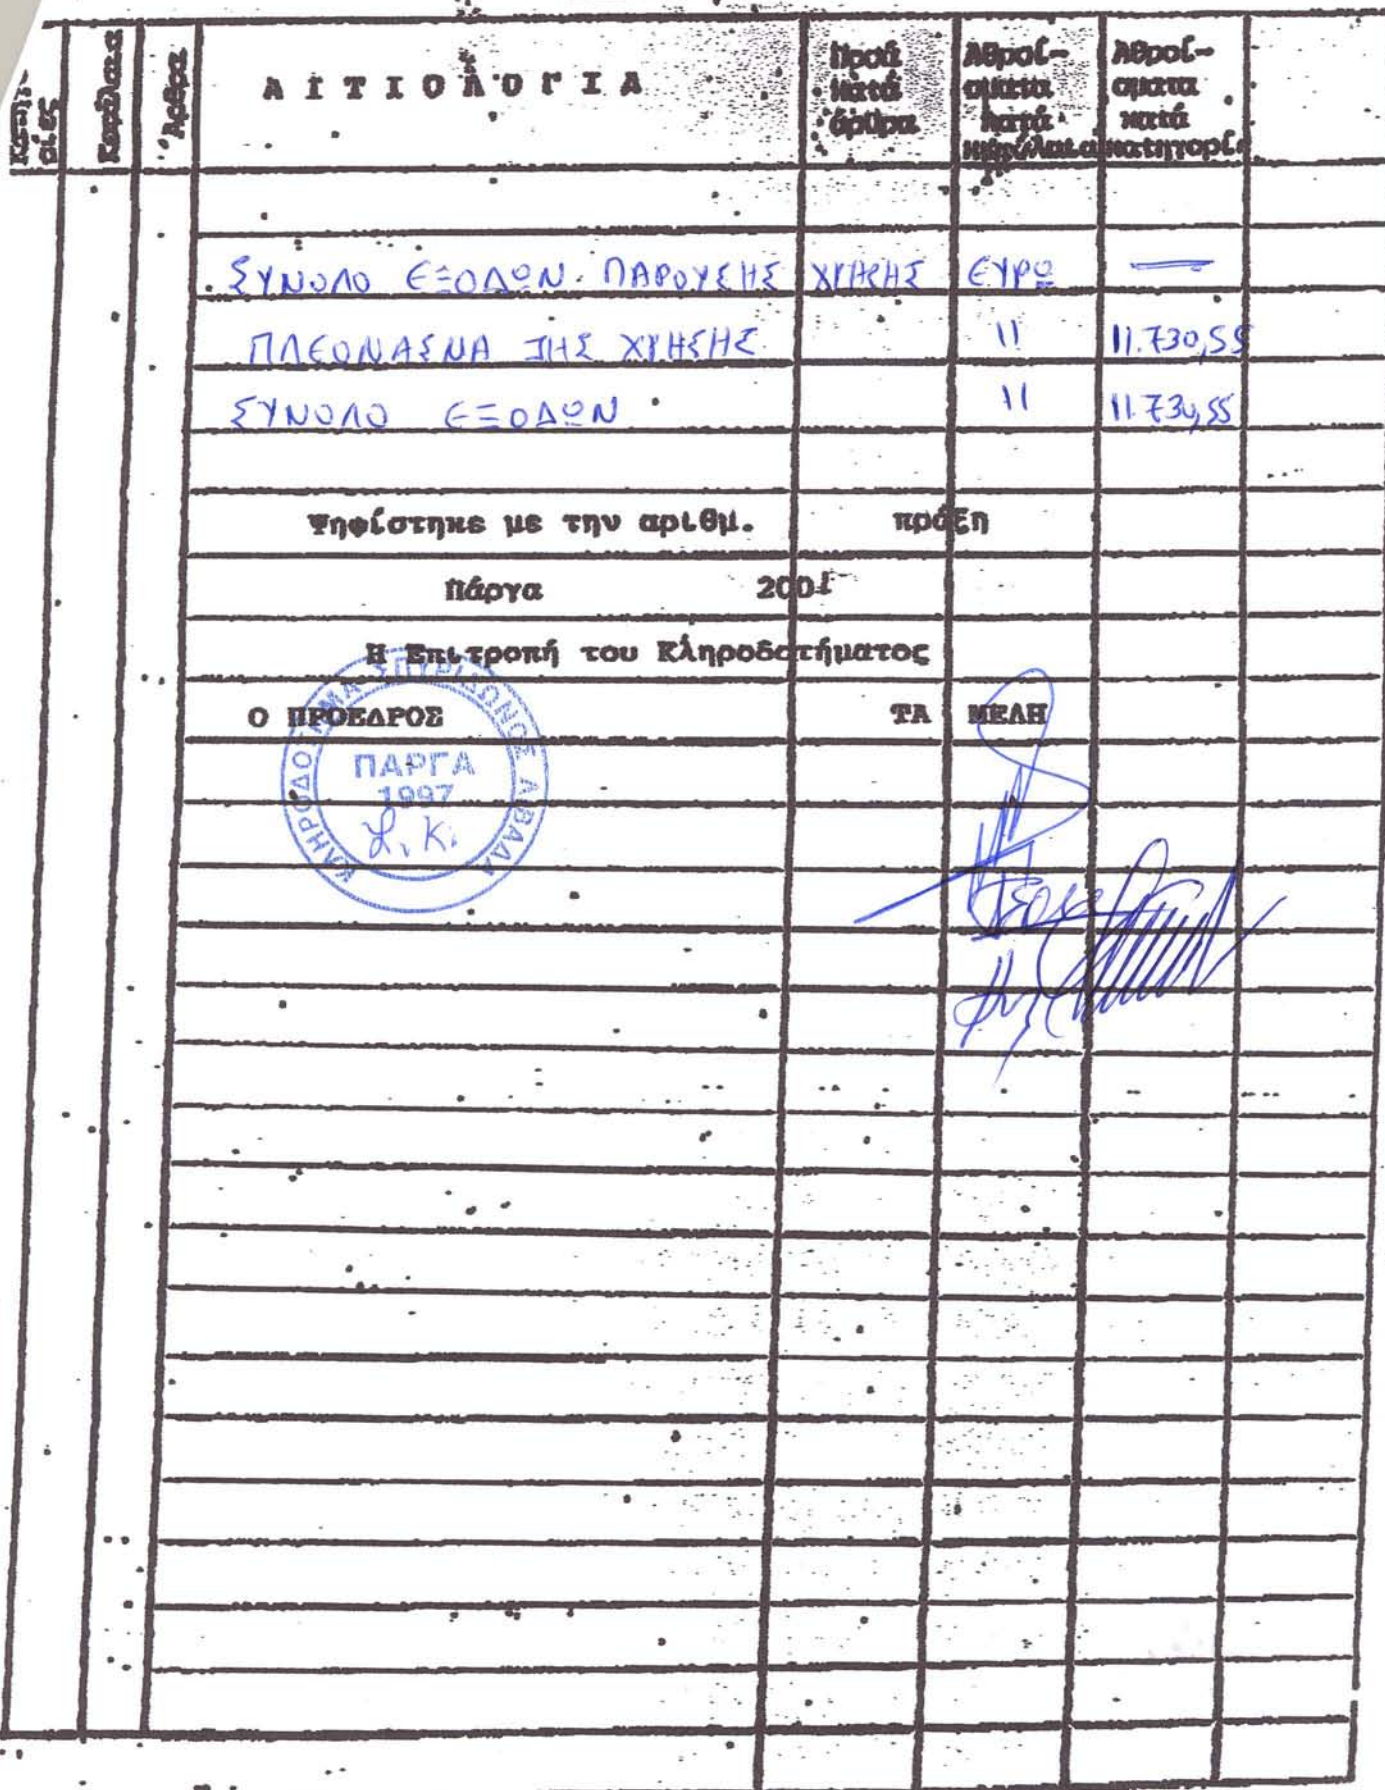 Κατηγορίες
Κεφάλαια
Άρθρα
ΑΙΤΙΟΛΟΓΙΑ
Ποσά
κατά
άρθρα
Αθροί-
σματα
κατά
κεφάλαια
Αθροί-
σματα
κατά
κατηγορί
ΣΥΝΟΛΟ ΕΞΟΔΩΝ ΠΑΡΟΥΣΗΣ ΧΡΗΣΗΣ ΕΥΡΩ —
ΠΛΕΟΝΑΣΜΑ ΤΗΣ ΧΡΗΣΗΣ " 11.730,55
ΣΥΝΟΛΟ ΕΞΟΔΩΝ " 11.730,55
Ψηφίστηκε με την αριθμ. πράξη
Πάργα 200
Η Επιτροπή του Κληροδοτήματος
Ο ΠΡΟΕΔΡΟΣ ΤΑ ΜΕΛΗ
ΚΛΗΡΟΔΟΤΗΜΑ ΣΠΥΡΙΔΩΝΟΣ ΛΙΒΑΔΑ
ΠΑΡΓΑ
1997